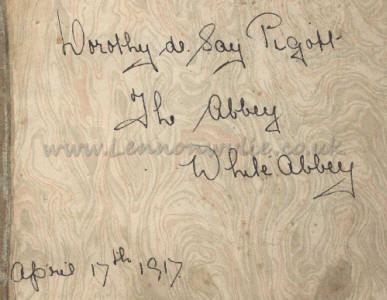 Dorothy de Say Pigott
The Abbey
www.Lennonwylie.co.uk
White Abbey
April 17th 1917